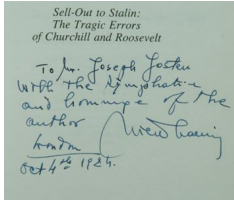 Sell-Out to Stalin:
The Tragic Errors
of Churchill and Roosevelt
To Mr. Joseph Josten
with the
and hommage of the
author
London
Oct 4th 1984.